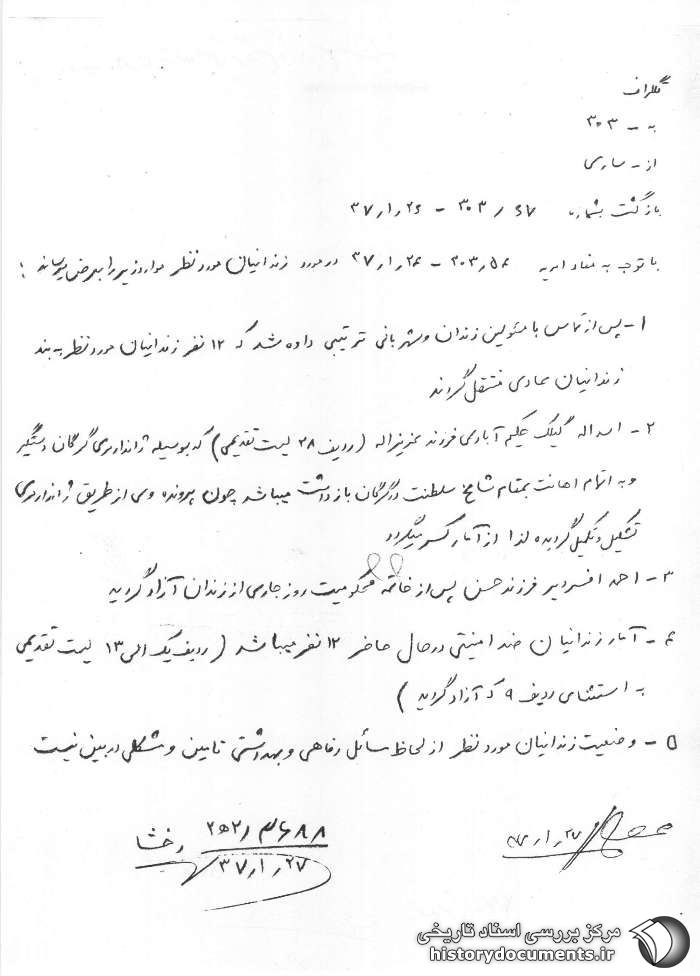 تلگراف
به - ۳۰۳
از - ساری
بازگشت بشماره ۳۰۳/۶۷ - ۳۷٫۱٫۲۶
با توجه به مفاد امریه ۳۰۳٫۵۴ - ۳۷٫۱٫۲۴ در مورد زندانیان مورد نظر موارد زیر را بعرض میرساند :
۱ - پس از تماس با مسئولین زندان و شهربانی ترتیبی داده شد که ۱۲ نفر زندانیان مورد نظر به بند
زندانیان عادی منتقل گردند
۲ - اسداله گیلک حکیم آبادی فرزند عزیزاله ( ردیف ۲۸ لیست تقدیمی ) که بوسیله ژاندارمری گرگان دستگیر
و به اتهام اهانت بمقام شامخ سلطنت در گرگان بازداشت میباشد چون پرونده وی از طریق ژاندارمری
تشکیل و تکمیل گردیده لذا از آمار کسر میگردد
۳ - احمد افسردیر فرزند حسن پس از خاتمه محکومیت روز جاری از زندان آزاد گردید
۴ - آمار زندانیان ضد امنیتی در حال حاضر ۱۲ نفر میباشد ( ردیف یک الی ۱۳ لیست تقدیمی
به استثنای ردیف ۹ که آزاد گردید )
۵ - وضعیت زندانیان مورد نظر از لحاظ مسائل رفاهی و بهداشتی تامین و مشکلی در بین نیست
رخشا
۳۷٫۱٫۲۷
مرکز بررسی اسناد تاریخی
historydocuments.ir